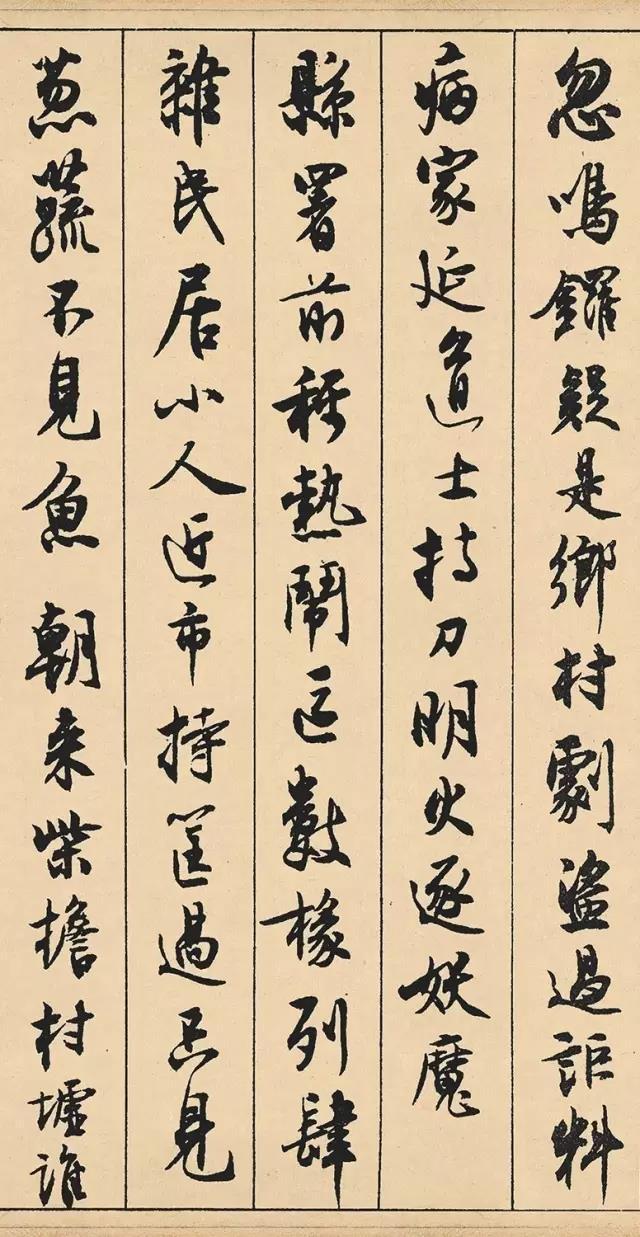 忽鳴鑼疑是鄉村劇盜過詎料
病家延道士持刀明火逐妖魔
縣署前稱熱鬧區數椽列肆
雜民居小人近市持筐過只見
蔥蔬不見魚 朝來柴擔村墟誰